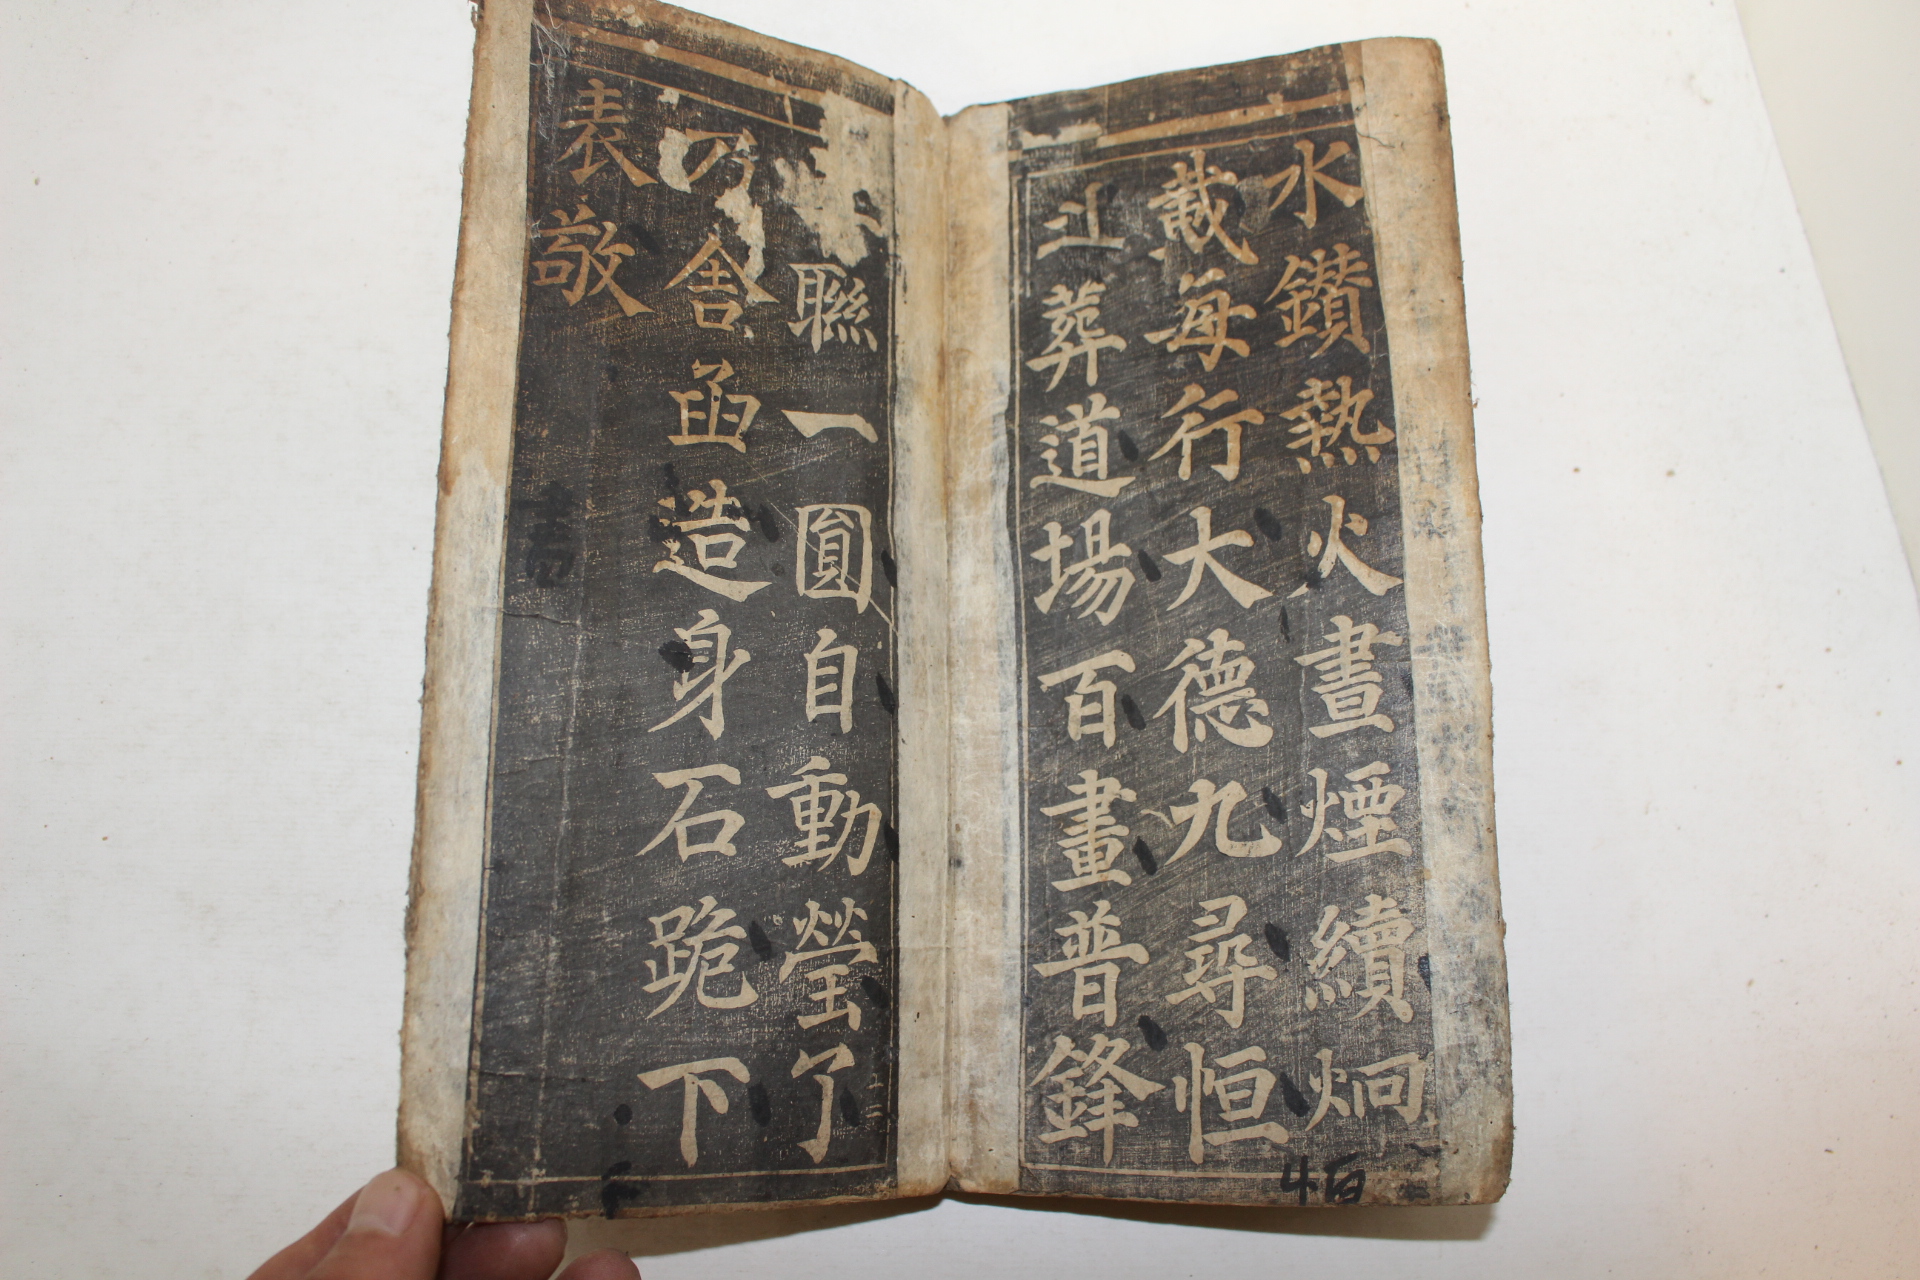 水鑽熱火晝煙續炯
每行大德九尋恒
葬道場百畫普鋒
聯一圓自動瑩了
乃舍函造身石跪下
表敬